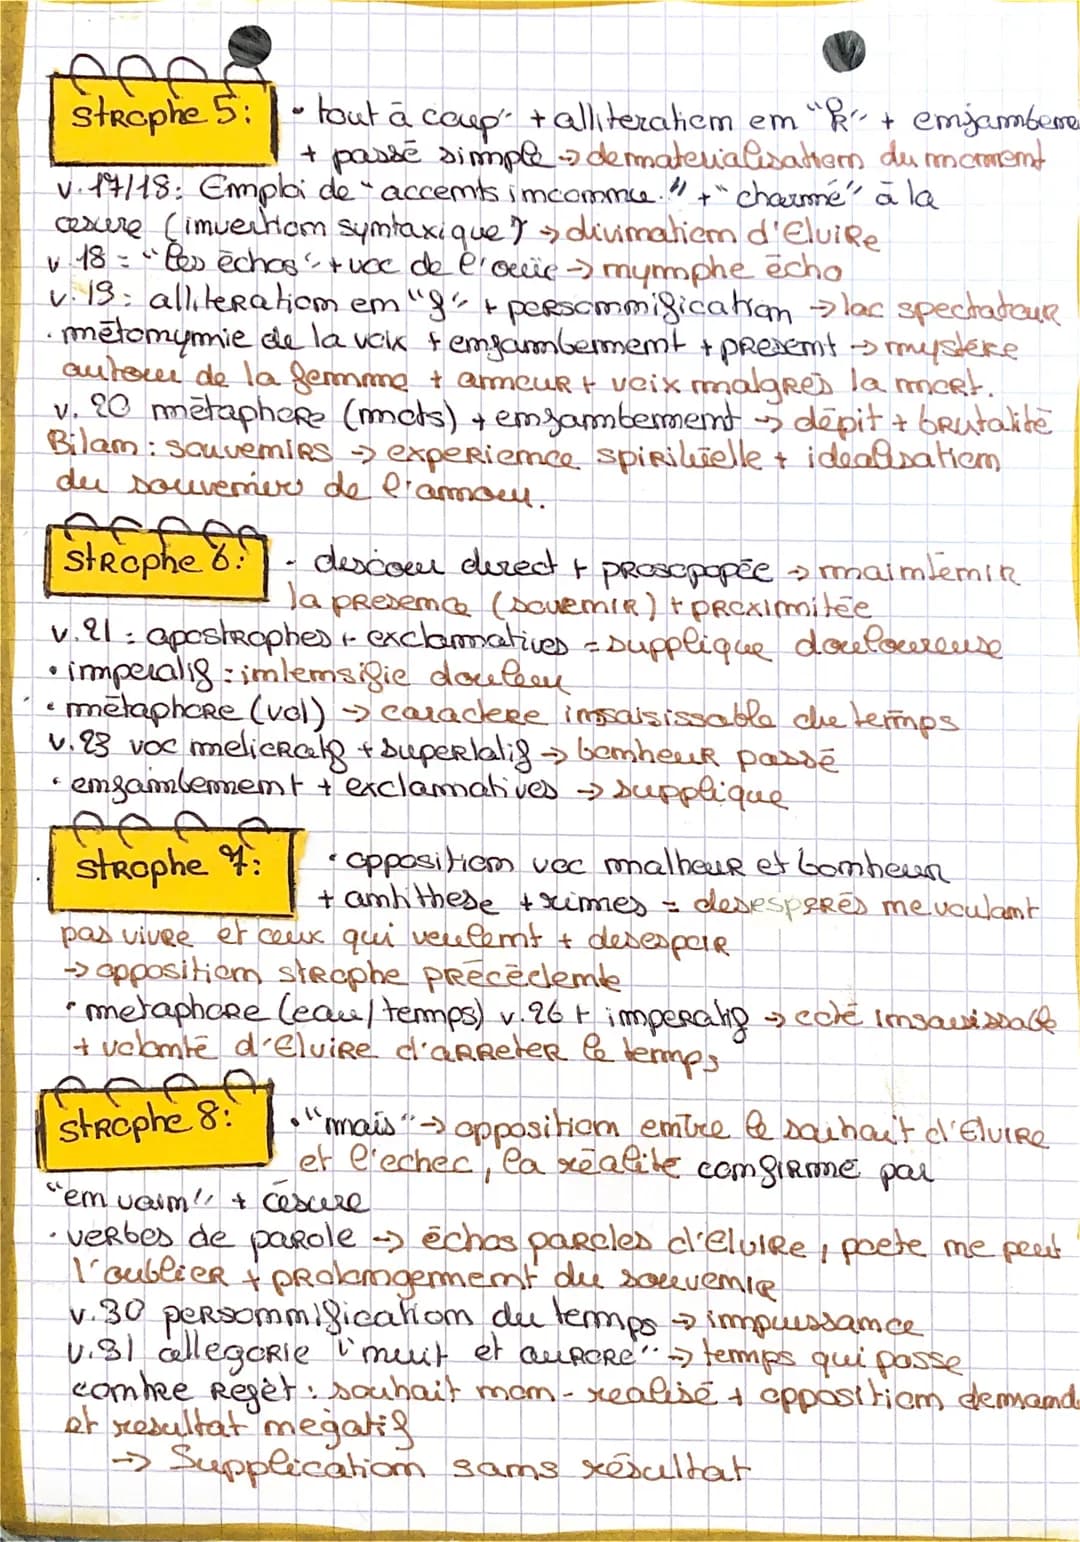 Strophe 5: • tout à coup" + alliteration en "R" + enjambeme
+ passé simple → dematerialisation du moment
v.17/18: Emploi de "accents inconnue." + "charmé" à la
cesure (invertion syntaxique) → divination d'Elvire
v.18 = "les échos" + voc de l'ouïe → nymphe écho
v.19: alliteration en "f" + personnification → lac spectateur
• métonymie de la voix + enjambement + present → mystère
autour de la femme + amour + voix malgres la mort.
v. 20 métaphore (mots) + enjambement → dépit + brutalité
Bilan: souvenirs → experience spirituelle + idealisation
du souvenirs de l'amour.
Strophe 6: - descour direct + prosopopée → maintenir
la presence (souvenir) + proximitée
v.21: apostrophes + exclamatives = supplique douloureuse
• imperatif: intensifie douleur
• métaphore (vol) → caractere insaisissable du temps
v.23 voc melioratf + superlatif → bonheur passé
• enjambement + exclamatives → supplique
Strophe 7: • opposition voc malheur et bonheur
+ antithese + rimes = desesperés ne voulant
pas vivre et ceux qui veulent + desespoir
→ opposition strophe précédente
• metaphore (eau/temps) v.26 + imperatif → coté insaisissable
+ volonté d'Elvire d'arreter le temps
Strophe 8: • "mais" → opposition entre le souhait d'Elvire
et l'echec, la réalite confirmé par
"en vain" + césure
• verbes de parole → échos paroles d'Elvire, poete ne peut
l'oublier + prolongement du souvenir
v.30 personnification du temps → impuissance
v.31 allegorie "nuit et aurore" → temps qui passe
contre Reget: souhait non-realisé + opposition demand
et resultat negatif
→ Supplication sans résultat